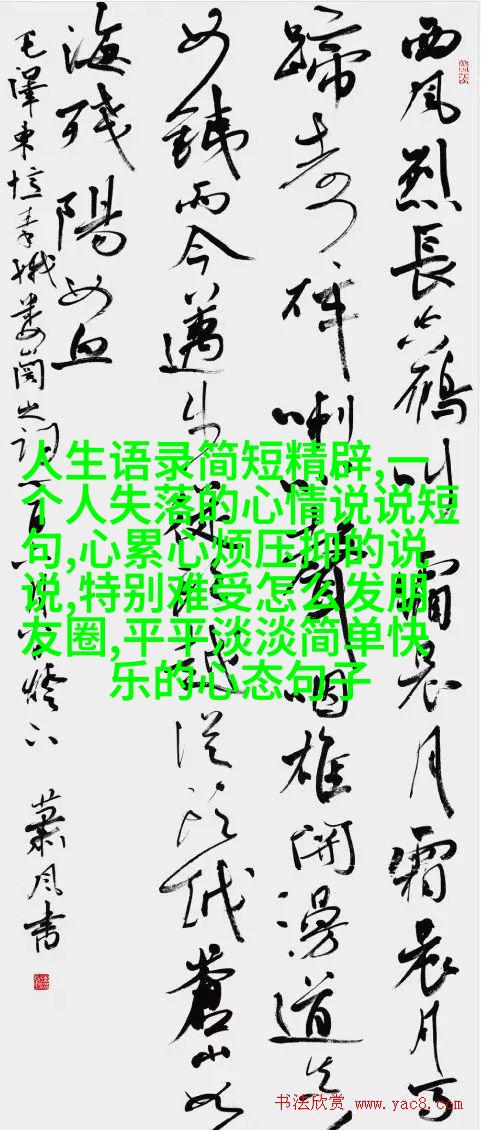 西風烈長空雁叫霜晨月霜晨月马
蹄声碎喇叭聲咽雄関漫道真
如鐵而今邁步從頭越從頭越蒼山如
海残陽如血
毛澤東憶秦娥娄山関之詞一首
蕭风書
人生语录简短精辟,一
个人失落的心情说说短
句,心累心烦压抑的说
说,特别难受怎么发朋
友圈,平平淡淡简单快
乐的心态句子
书法欣赏 www.yac8.com